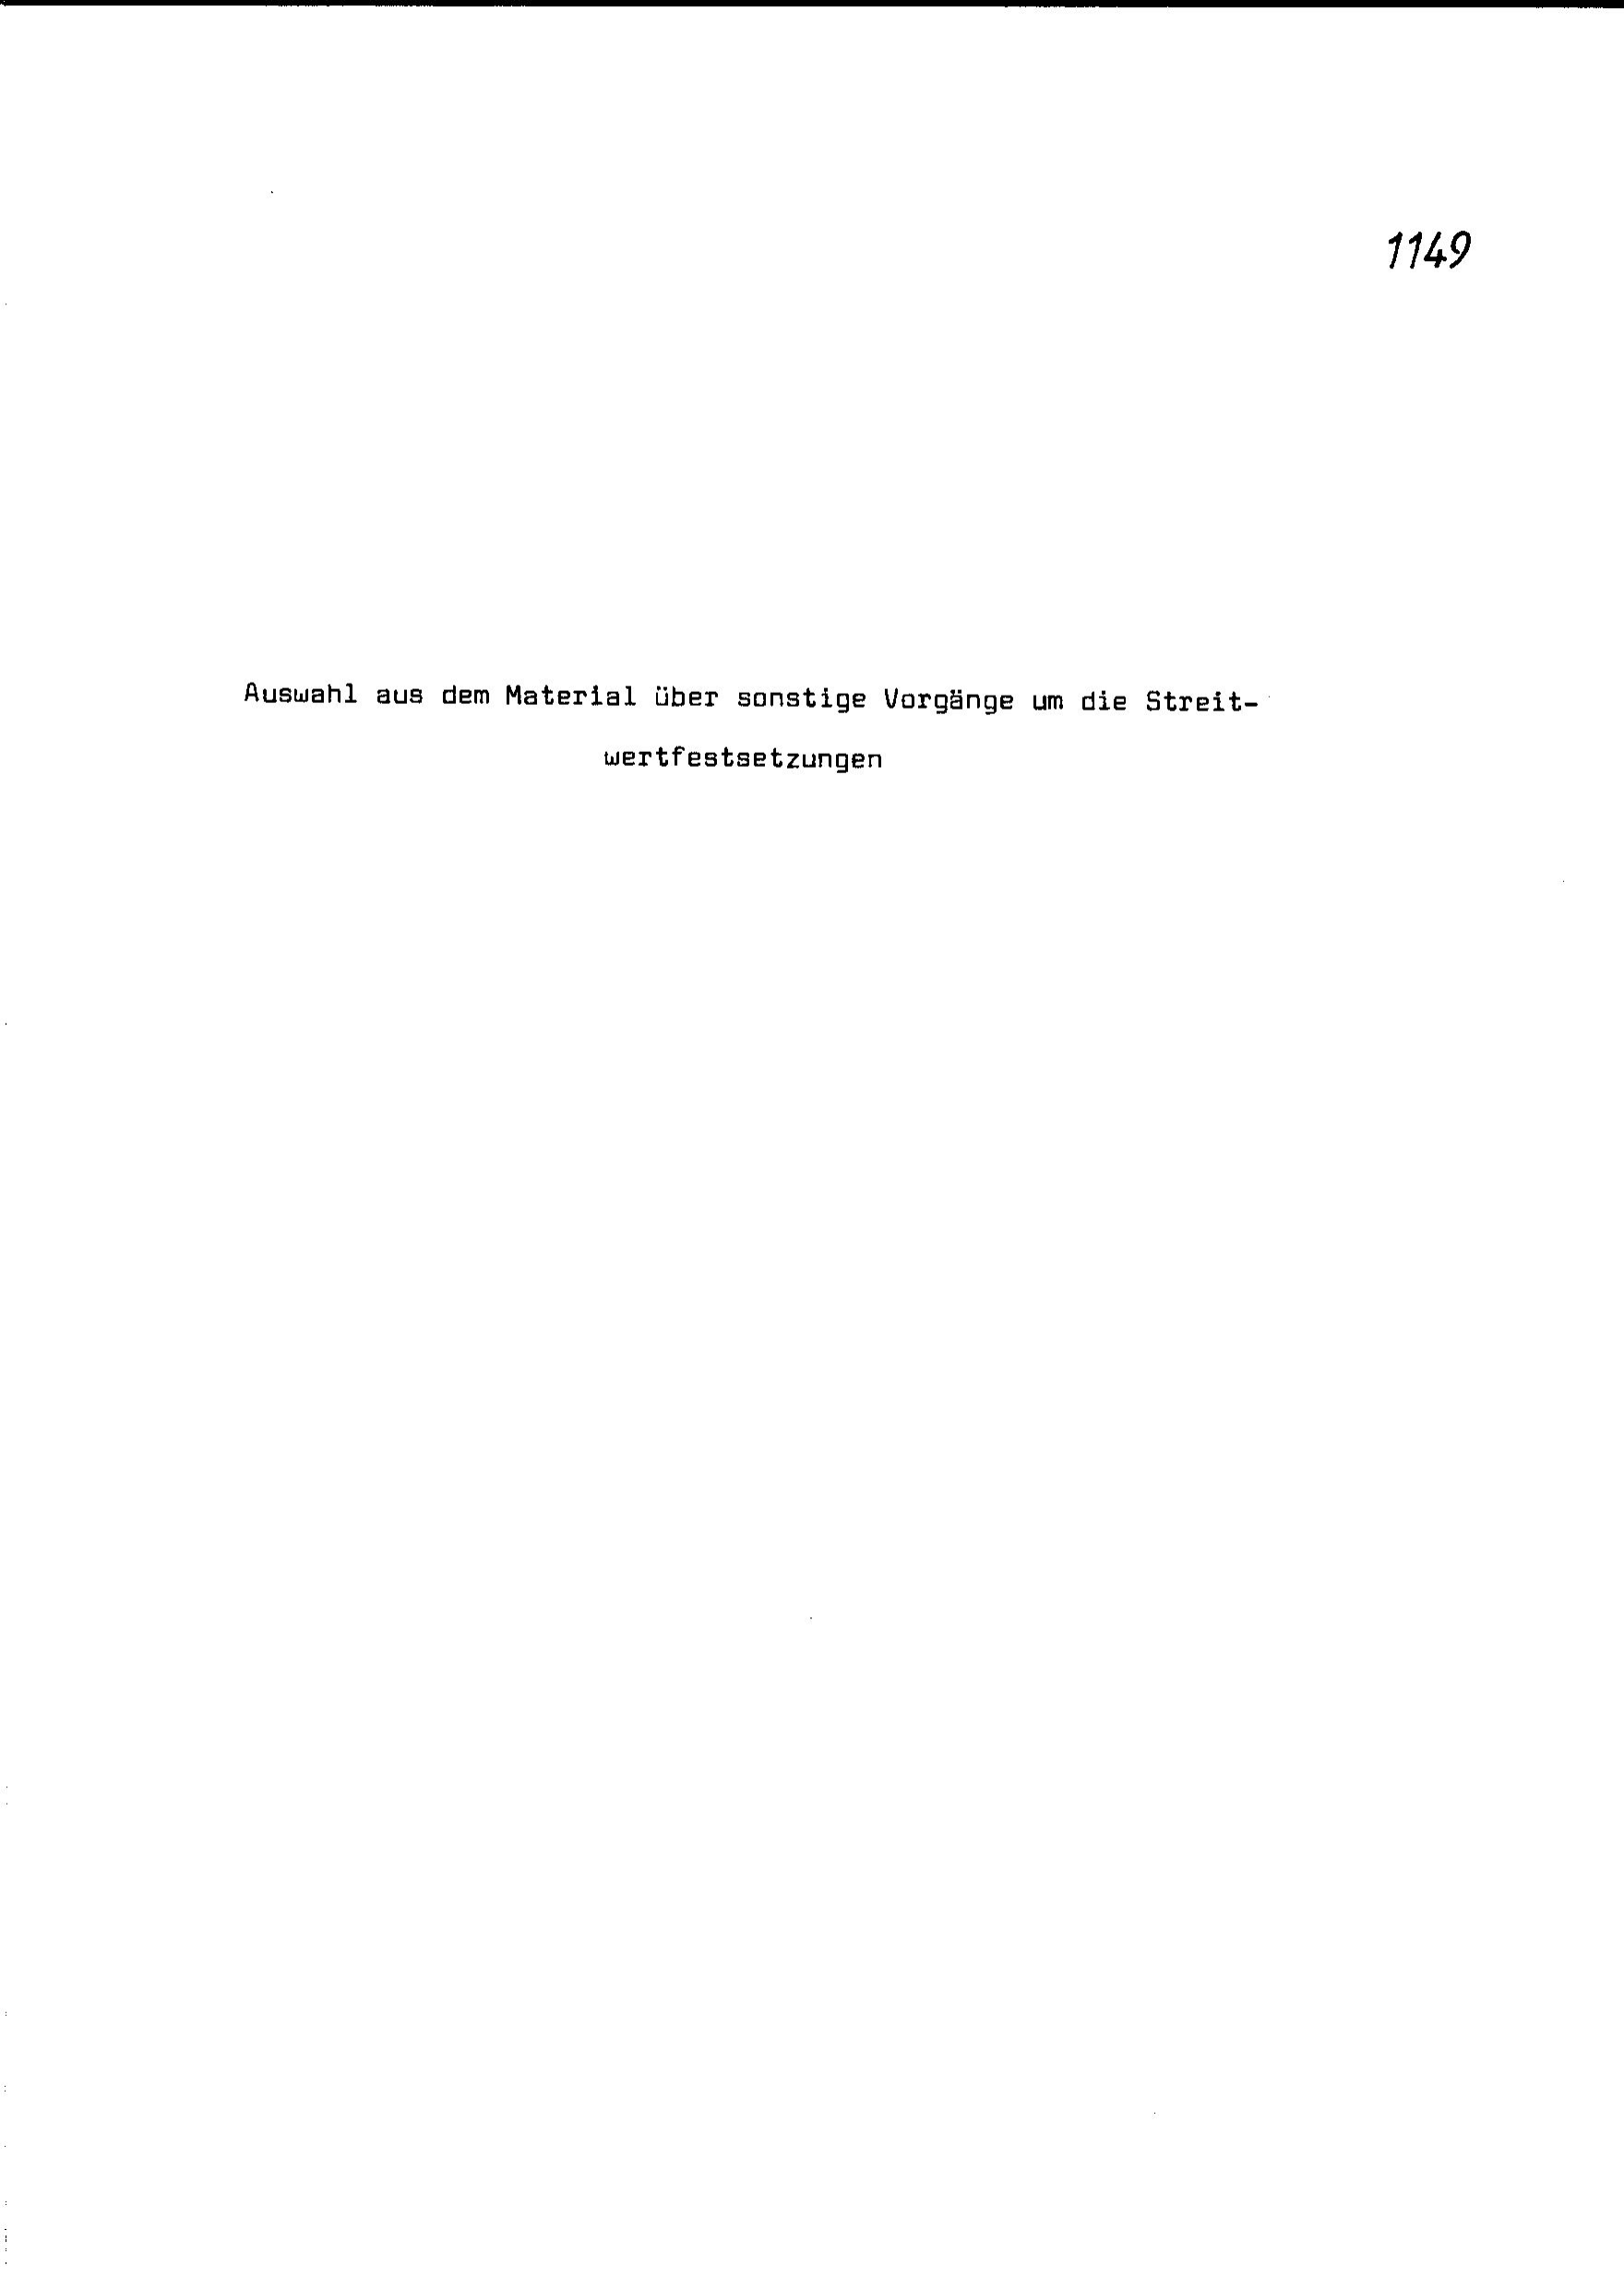 1149
Auswahl aus dem Material über sonstige Vorgänge um die Streit-
wertfestsetzungen